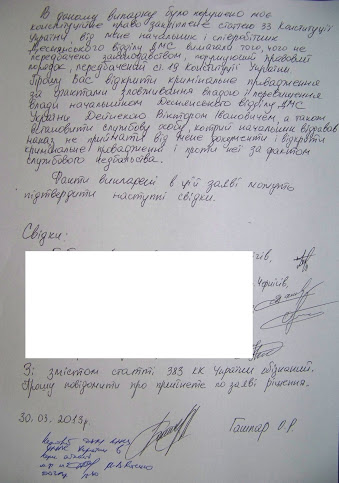 В даному випадку було порушено моє
конституційне право закріплене статтею 33 Конституції
України, від мене начальник і співробітник
Деснянського відділу ДМС вимагали того, чого не
передбачено законодавством, порушуючи правовий
порядок, передбачений ст. 19 Конституції України
Прошу Вас відкрити кримінальне провадження
за фактами зловживання владою і перевищення
влади начальником Деснянського відділу ДМС
України Дейнекою Віктором Івановичем, а також
встановити службову особу, котрій начальник віддавав
наказ не приймати від мене документи і відкрити
кримінальне провадження і проти неї за фактом
службового недбальства.
Факти викладені в цій заяві можуть
підтвердити наступні свідки.
Свідки:
Чернігів,
Зі змістом статті 383 КК України обізнаний.
Прошу повідомити про прийняте по заяві рішення.
30.03.2013р.
Гашпар О.Р.